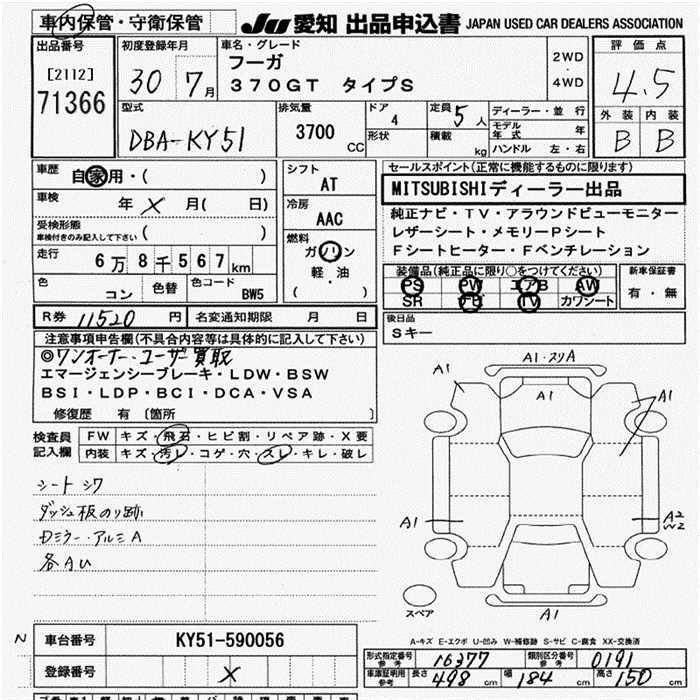 車内保管・守衛保管
JU 愛知 出品申込書 JAPAN USED CAR DEALERS ASSOCIATION
出品番号 [2112] 71366
初度登録年月 30 7月
車名・グレード フーガ
370GT タイプS
2WD ・ 4WD
評価点 4.5
外装 内装
B B
型式 DBA-KY51
排気量 3700 CC
ドア 4
形状
定員 5 人
積載 kg
ディーラー・並行
モデル年式 年
ハンドル 左・右
車歴 自家用・( )
車検 年 X 月( 日)
受検形態 車検付きのみ記入して下さい ( )
走行 6万8千567km
色 コン 色替 色コード BW5
シフト AT
冷房 AAC
燃料 ガソリン
軽・油
( )
セールスポイント(正常に機能するものに限ります)
MITSUBISHIディーラー出品
純正ナビ・TV・アラウンドビューモニター
レザーシート・メモリーPシート
Fシートヒーター・Fベンチレーション
装備品(純正品に限り○をつけてください)
PS PW エアB AW
SR ナビ TV カワシート
新車保証書
有・無
R券 11520 円 名変通知期限 月 日
後日品
Sキー
注意事項申告欄(不具合内容等は具体的に記入して下さい)
◎ワンオーナー・ユーザー買取
エマージェンシーブレーキ・LDW・BSW
BSI・LDP・BCI・DCA・VSA
修復歴 有 〔箇所 〕
検査員記入欄
FW キズ・飛石・ヒビ割・リペア跡・X要
内装 キズ・汚レ・コゲ・穴・スレ・キレ・破レ
シートシワ
ダッシュ板のり跡
ミラー・アルミA
各AU
A1・スリA
A1
A1
A1
A1
A2
W2
A1
スペア
A-キズ E-エクボ U-凹み W-補修跡 S-サビ C-腐食 XX-交換済
N
車台番号 KY51-590056
登録番号 X
形式指定番号 参考 16377 類別区分番号 参考 0191
車庫証明用 参考 長さ 498 cm 幅 184 cm 高さ 150 cm